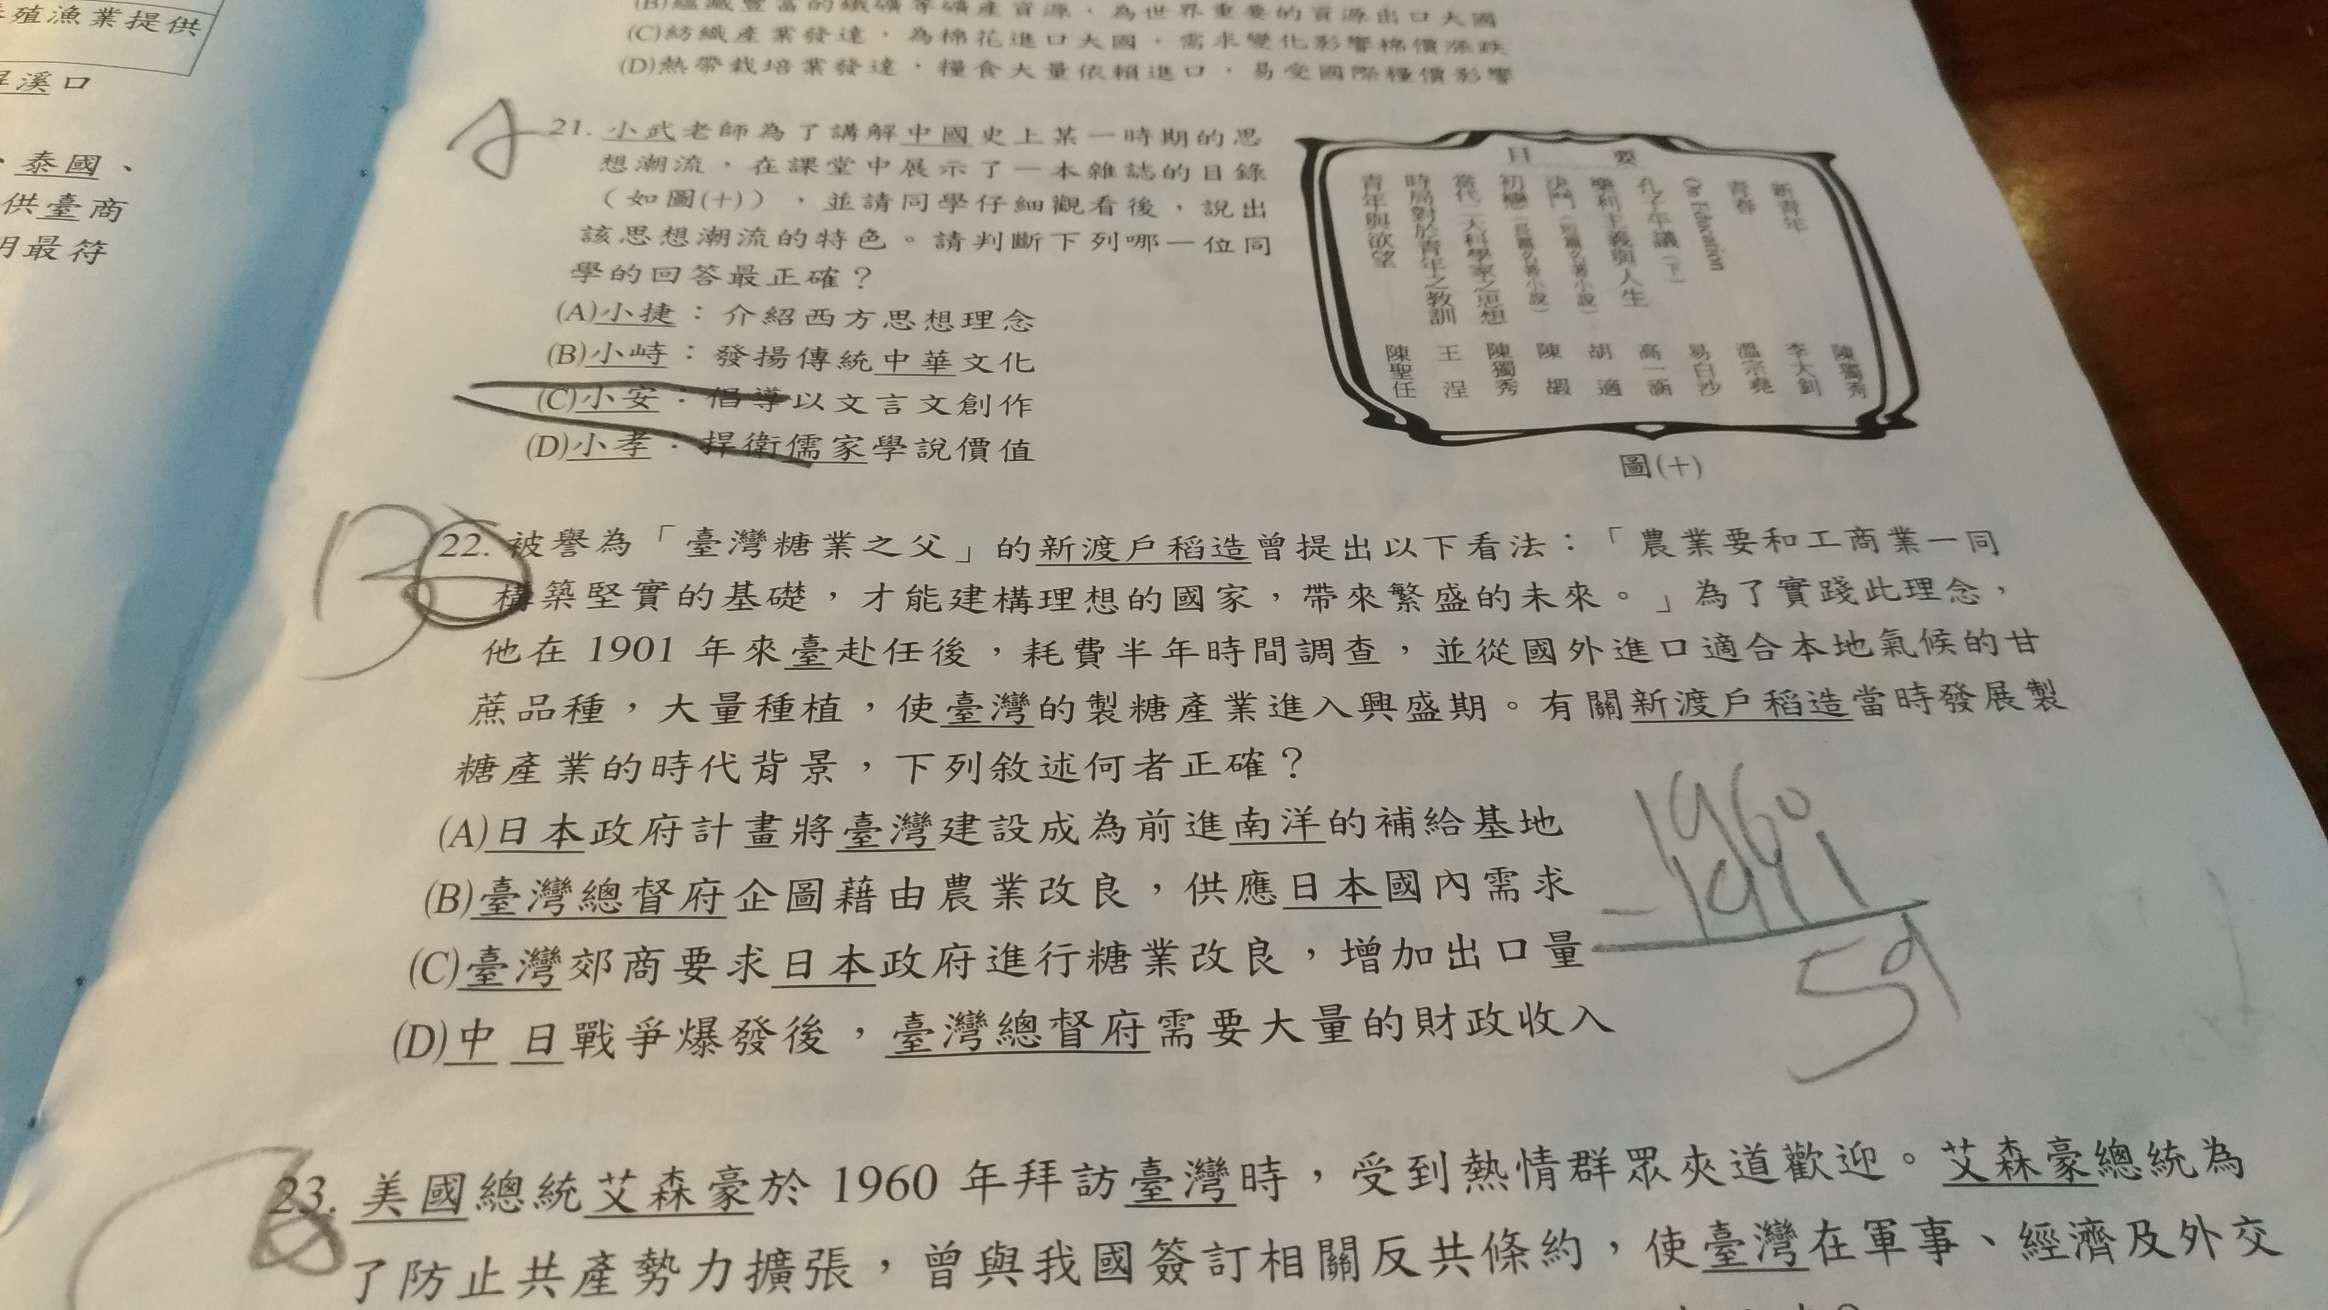 殖漁業提供
溪口
、泰國、
供臺商
明最符
(B)蘊藏豐富的鐵礦等礦產資源，為世界重要的資源出口大國
(C)紡織產業發達，為棉花進口大國，需求變化影響棉價漲跌
(D)熱帶栽培業發達，糧食大量依賴進口，易受國際糧價影響
A
21. 小武老師為了講解中國史上某一時期的思
想潮流，在課堂中展示了一本雜誌的目錄
（如圖(十)），並請同學仔細觀看後，說出
該思想潮流的特色。請判斷下列哪一位同
學的回答最正確？
(A)小捷：介紹西方思想理念
(B)小峙：發揚傳統中華文化
(C)小安：倡導以文言文創作
(D)小孝：捍衛儒家學說價值
目 要
新青年 陳獨秀
青春 李大釗
On Education 溫宗堯
孔子平議（下） 易白沙
樂利主義與人生 高一涵
決鬥（短篇名著小說） 胡適
初戀（長篇名著小說） 陳嘏
當代二大科學家之思想 陳獨秀
時局對於青年之教訓 王涅
青年與欲望 陳聖任
圖(十)
B
22. 被譽為「臺灣糖業之父」的新渡戶稻造曾提出以下看法：「農業要和工商業一同
構築堅實的基礎，才能建構理想的國家，帶來繁盛的未來。」為了實踐此理念，
他在 1901 年來臺赴任後，耗費半年時間調查，並從國外進口適合本地氣候的甘
蔗品種，大量種植，使臺灣的製糖產業進入興盛期。有關新渡戶稻造當時發展製
糖產業的時代背景，下列敘述何者正確？
(A)日本政府計畫將臺灣建設成為前進南洋的補給基地
(B)臺灣總督府企圖藉由農業改良，供應日本國內需求
(C)臺灣郊商要求日本政府進行糖業改良，增加出口量
(D)中 日戰爭爆發後，臺灣總督府需要大量的財政收入
1960
-1911
59
23. 美國總統艾森豪於 1960 年拜訪臺灣時，受到熱情群眾夾道歡迎。艾森豪總統為
了防止共產勢力擴張，曾與我國簽訂相關反共條約，使臺灣在軍事、經濟及外交